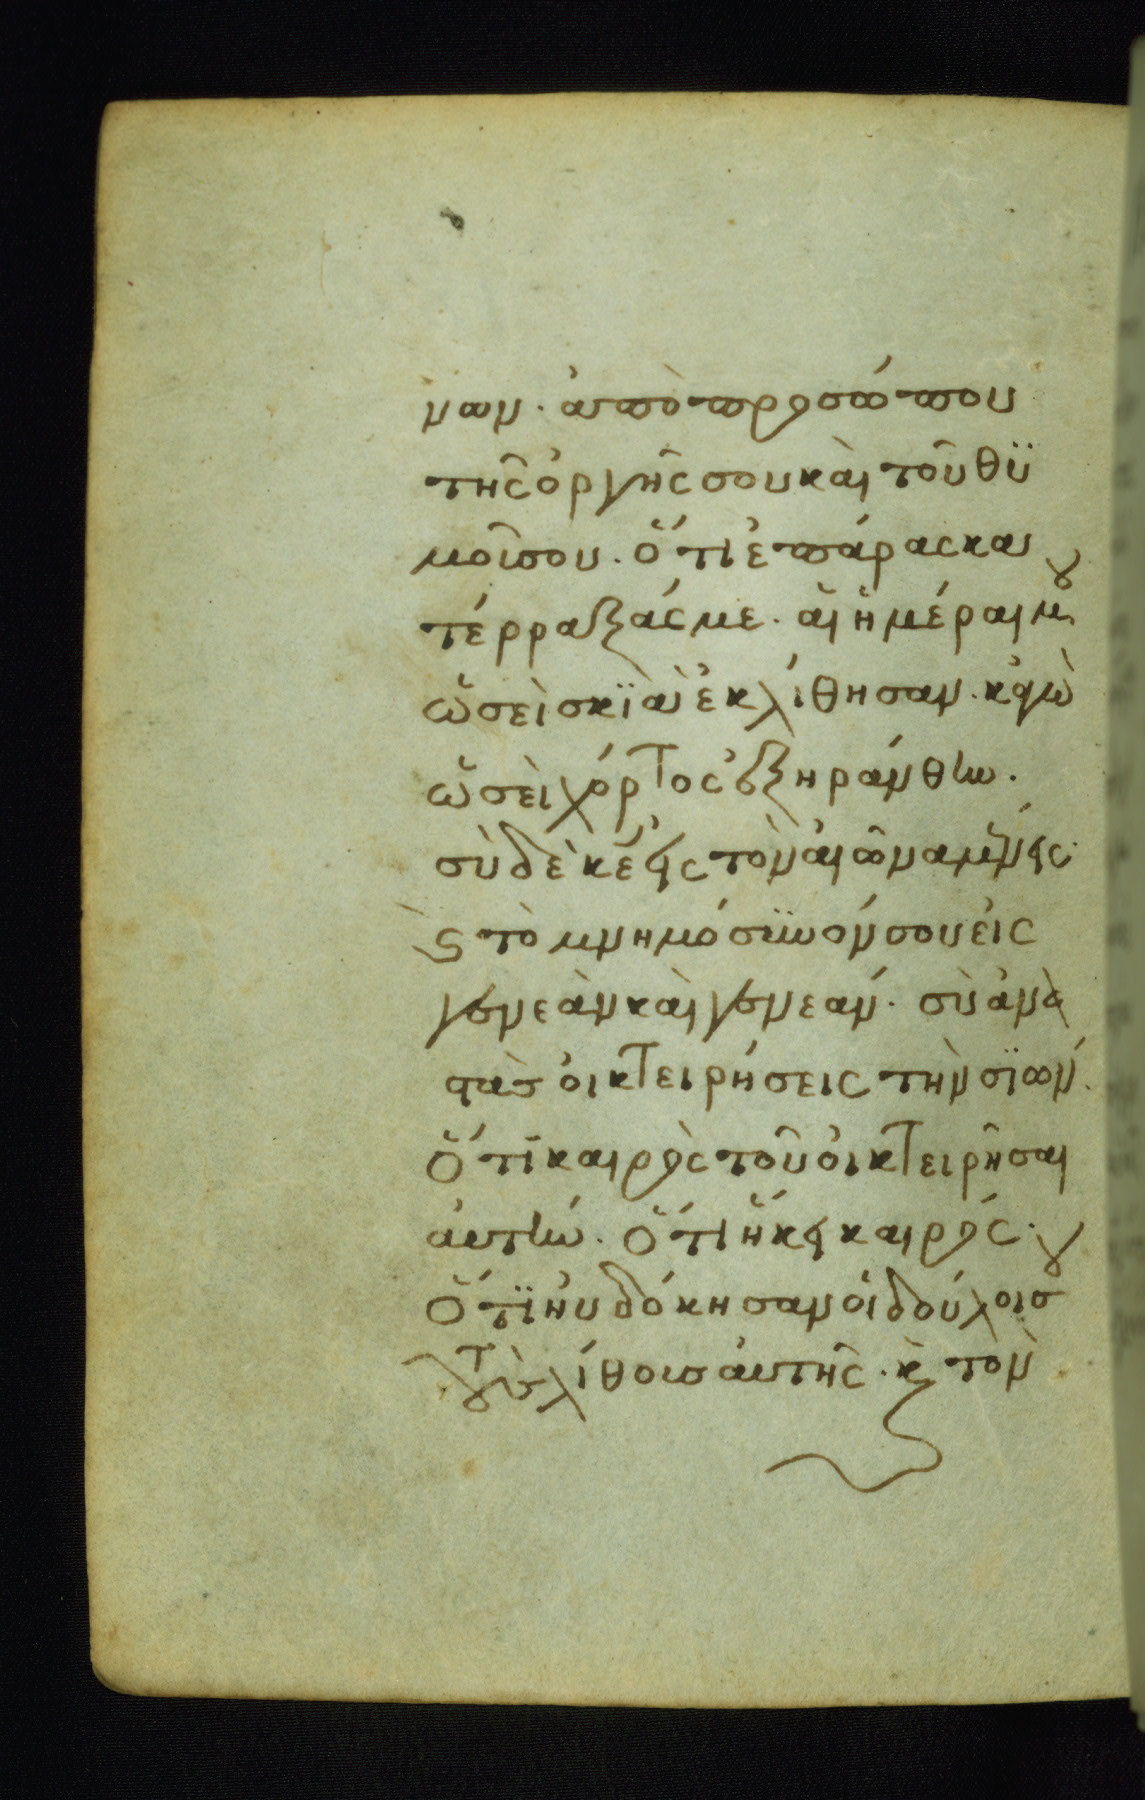 νων. ἀπὸ προσώπου
τῆς ὀργῆς σου καὶ τοῦ θϋ
μοῦ σου. ὅτι ἐπάρας κα
τέρραξάς με. αἱ ἡμέραι μου
ὡσεὶ σκϊαὶ ἐκλίθησαν. κἀγὼ
ὡσεὶ χόρτος ἐξηράνθην.
σὺ δὲ κε εἰς τὸν αἰῶνα μένεις.
καὶ τὸ μνημόσϋνόν σου εἰς
γενεὰν καὶ γενεάν. σὺ ἀνα
στὰς οἰκτειρήσεις τὴν σϊών.
ὅτι καιρὸς τοῦ οἰκτειρῆσαι
αὐτήν. ὅτι ἥκει καιρός.
ὅτϊ ηὐδόκησαν οἱ δοῦλοι σου
τοὺς λίθους αὐτῆς. καὶ τὸν